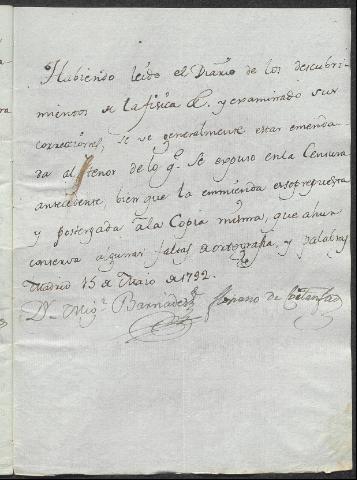 Habiendo leido el Diario de los descubri-
mientos de la fisica &. y examinado sus
correcciones, se ve generalmente estar emenda-
da al tenor de lo q.e se expuso en la Censura
antecedente, bien que la enmienda es sobrepuesta
y postergada a la Copia misma, que ahun
conserva algunas faltas de ortografia, y palabras
Madrid 15 de Mayo de 1792.
D.n Mig.l Barnades